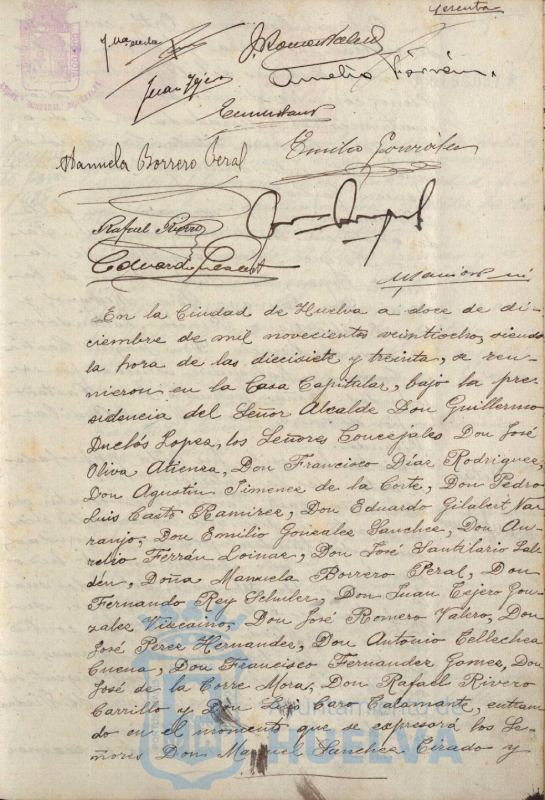 sesenta
Juan Tejero
Aurelio Ferrán
Manuela Borrero Peral
Emilio González
Rafael Rivero
Eduardo
En la Ciudad de Huelva a doce de di-
ciembre de mil novecientos veintiocho, siendo
la hora de las diecisiete y treinta, se reu-
nieron en la Casa Capitular, bajo la pre-
sidencia del Señor Alcalde Don Guillermo
Duclós Lopez, los Señores Concejales Don José
Oliva Atienza, Don Francisco Díaz Rodriguez,
Don Agustín Jimenez de la Corte, Don Pedro
Luis Casto Ramirez, Don Eduardo Gilabert Na-
ranjo, Don Emilio Gonzalez Sanchez, Don Au-
relio Ferrán Loinaz, Don José Santilario Sal-
Doña Manuela Borrero Peral, Don
Fernando Rey Schuler, Don Juan Tejero Gon-
zalez Viscaino, Don José Romero Valero, Don
José Perez Hernandez, Don Antonio Tellechea
Cuena, Don Francisco Fernandez Gomez, Don
José de la Corte Mora, Don Rafael Rivero
Carrillo y Don Luis Caro Calamante, entran-
do en el momento que se expresará los Se-
ñores Don Manuel Sanchez Tirado y
Ayuntamiento de
HUELVA